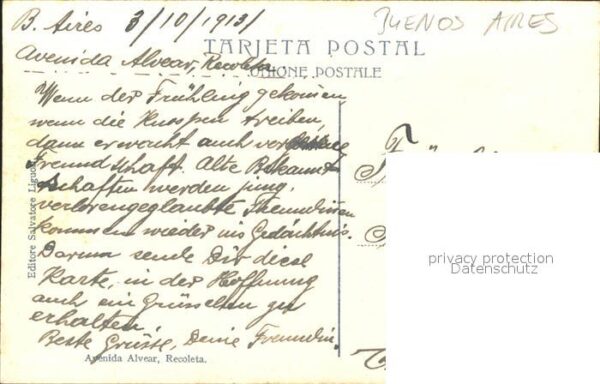 B. Aires 3/10/1913/
BUENOS AIRES
TARJETA POSTAL
UNIONE POSTALE
Avenida Alvear, Recoleta
Wenn der Frühling gekommen
wenn die Knospen treiben,
dann erwacht auch
Freundschaft. Alte Bekannt-
schaften werden jung,
verlorengeglaubte Freundinnen
kommen wieder ins Gedächtnis.
Darum sende Dir diese
Karte, in der Hoffnung
auch ein Grüsschen zu
erhalten.
Beste Grüsse, Deine Freundin.
Avenida Alvear, Recoleta.
Editore Salvatore
privacy protection
Datenschutz